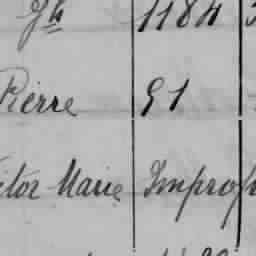 Jh 1184
Pierre 51
ctor Marie Improp